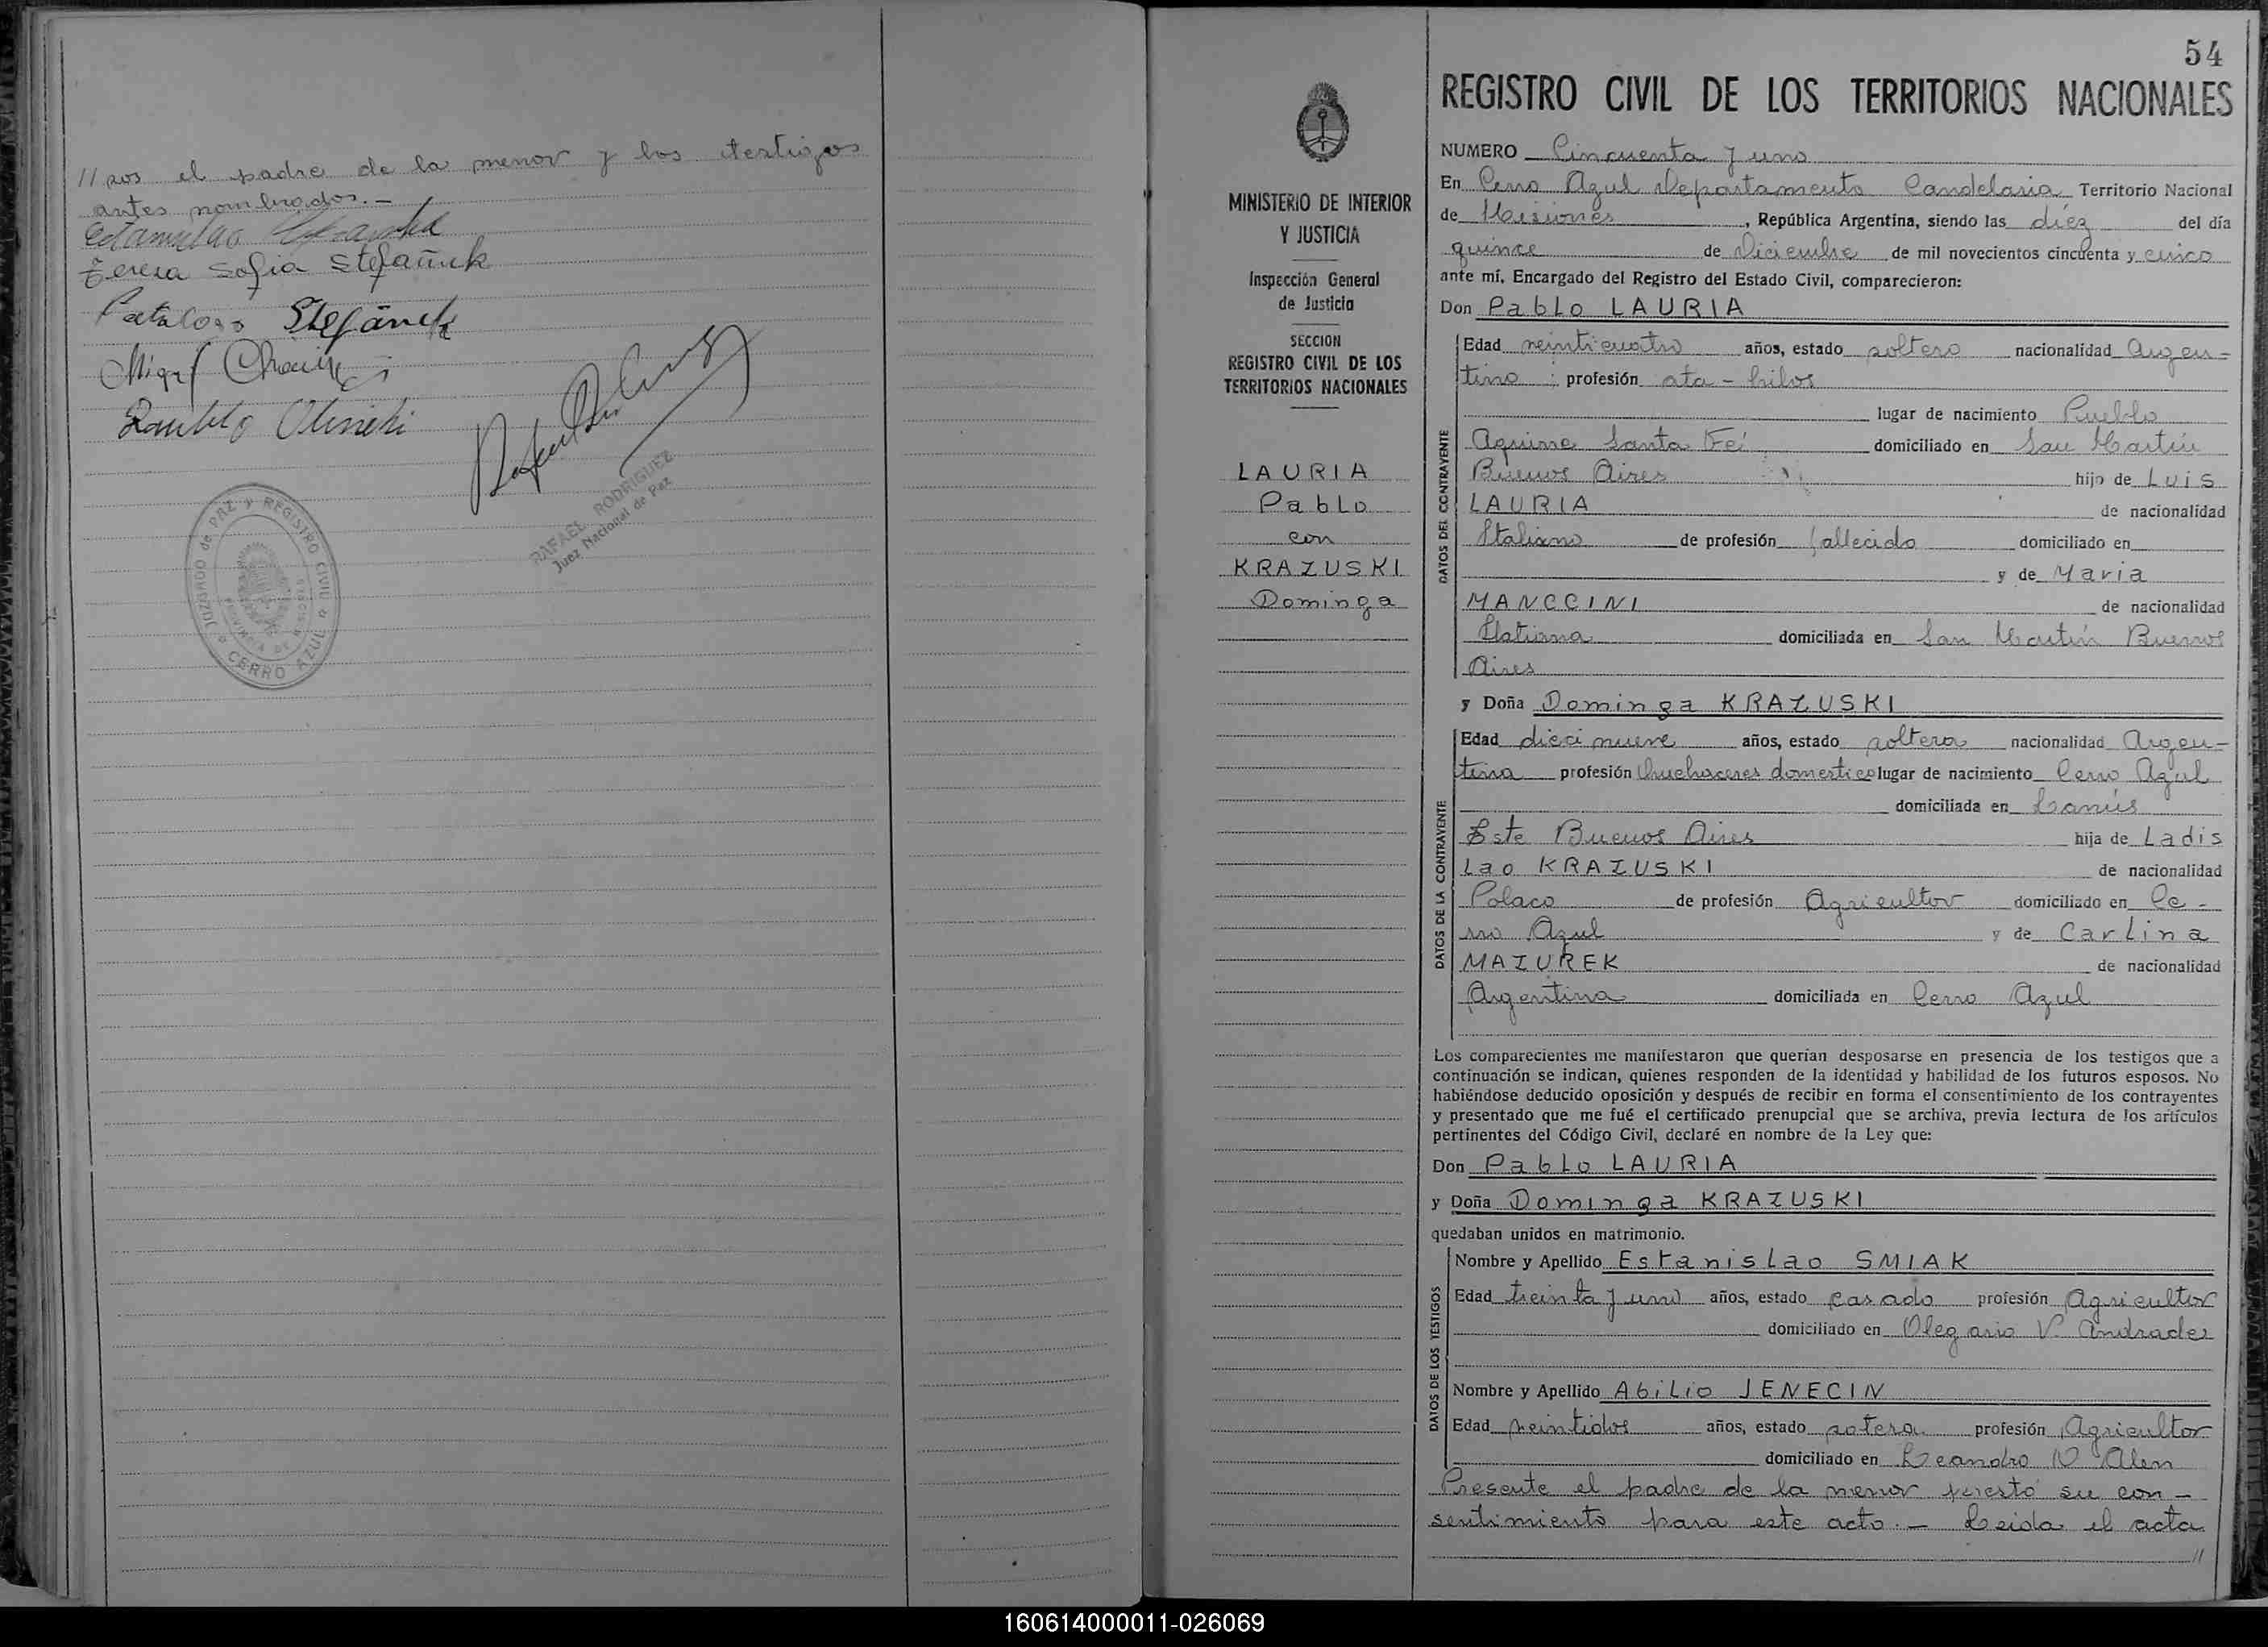 //sos el padre de la menor y los testigos
antes nombrados.-
Teresa Sofia Stefañuk
Rafael
RAFAEL RODRIGUEZ
Juez Nacional de Paz
JUZGADO de PAZ y REGISTRO CIVIL
CERRO AZUL
54
MINISTERIO DE INTERIOR
Y JUSTICIA
Inspección General
de Justicia
SECCION
REGISTRO CIVIL DE LOS
TERRITORIOS NACIONALES
LAURIA
Pablo
con
KRAZUSKI
Dominga
REGISTRO CIVIL DE LOS TERRITORIOS NACIONALES
NUMERO Cincuenta y uno
En Cerro Azul Departamento Candelaria Territorio Nacional
de Misiones, República Argentina, siendo las diez del día
quince de Diciembre de mil novecientos cincuenta y cinco
ante mí, Encargado del Registro del Estado Civil, comparecieron:
Don Pablo LAURIA
DATOS DEL CONTRAYENTE
Edad veinticuatro años, estado soltero nacionalidad Argen-
tino profesión ata-hilos
lugar de nacimiento Pueblo
Aguirre Santa Fé domiciliado en San Martín
Buenos Aires hijo de Luis
LAURIA de nacionalidad
Italiano de profesión fallecido domiciliado en
y de Maria
MANCCINI de nacionalidad
Italiana domiciliada en San Martín Buenos
Aires
y Doña Dominga KRAZUSKI
DATOS DE LA CONTRAYENTE
Edad diecinueve años, estado soltera nacionalidad Argen-
tina profesión Quehaceres domestico lugar de nacimiento Cerro Azul
domiciliada en Lanús
Este Buenos Aires hija de Ladis
lao KRAZUSKI de nacionalidad
Polaco de profesión Agricultor domiciliado en Ce-
rro Azul y de Carlina
MAZUREK de nacionalidad
Argentina domiciliada en Cerro Azul
Los comparecientes me manifestaron que querían desposarse en presencia de los testigos que a
continuación se indican, quienes responden de la identidad y habilidad de los futuros esposos. No
habiéndose deducido oposición y después de recibir en forma el consentimiento de los contrayentes
y presentado que me fué el certificado prenupcial que se archiva, previa lectura de los artículos
pertinentes del Código Civil, declaré en nombre de la Ley que:
Don Pablo LAURIA
y Doña Dominga KRAZUSKI
quedaban unidos en matrimonio.
DATOS DE LOS TESTIGOS
Nombre y Apellido Estanislao SMIAK
Edad treinta y uno años, estado casado profesión Agricultor
domiciliado en Olegario V. Andrades
Nombre y Apellido Abilio JENECIN
Edad veintidos años, estado sotero profesión Agricultor
domiciliado en Leandro N Alen
Presente el padre de la menor prestó su con-
sentimiento para este acto.- Leida el acta
//
160614000011-026069